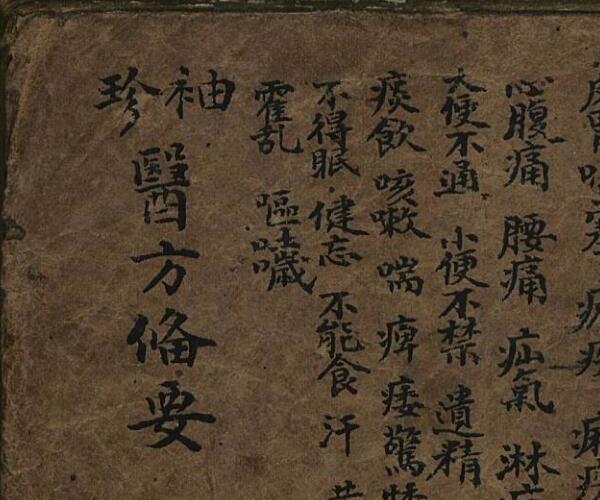 心腹痛 腰痛 疝氣 淋
大便不通 小便不禁 遺精
痰飲 咳嗽 喘 痺 痿 驚
不得眠 健忘 不能食 汗
霍乱 嘔吐噦
袖珍
醫方俻要